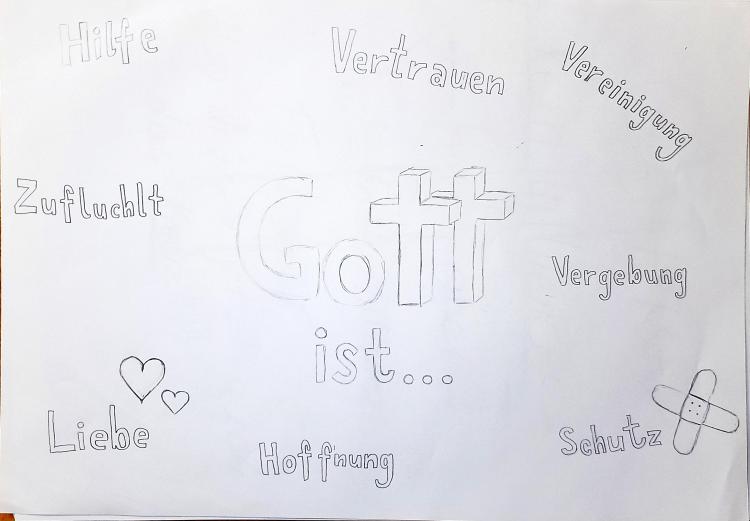 Hilfe
Vertrauen
Vereinigung
Zufluchlt
Gott
ist...
Vergebung
Liebe
Hoffnung
Schutz